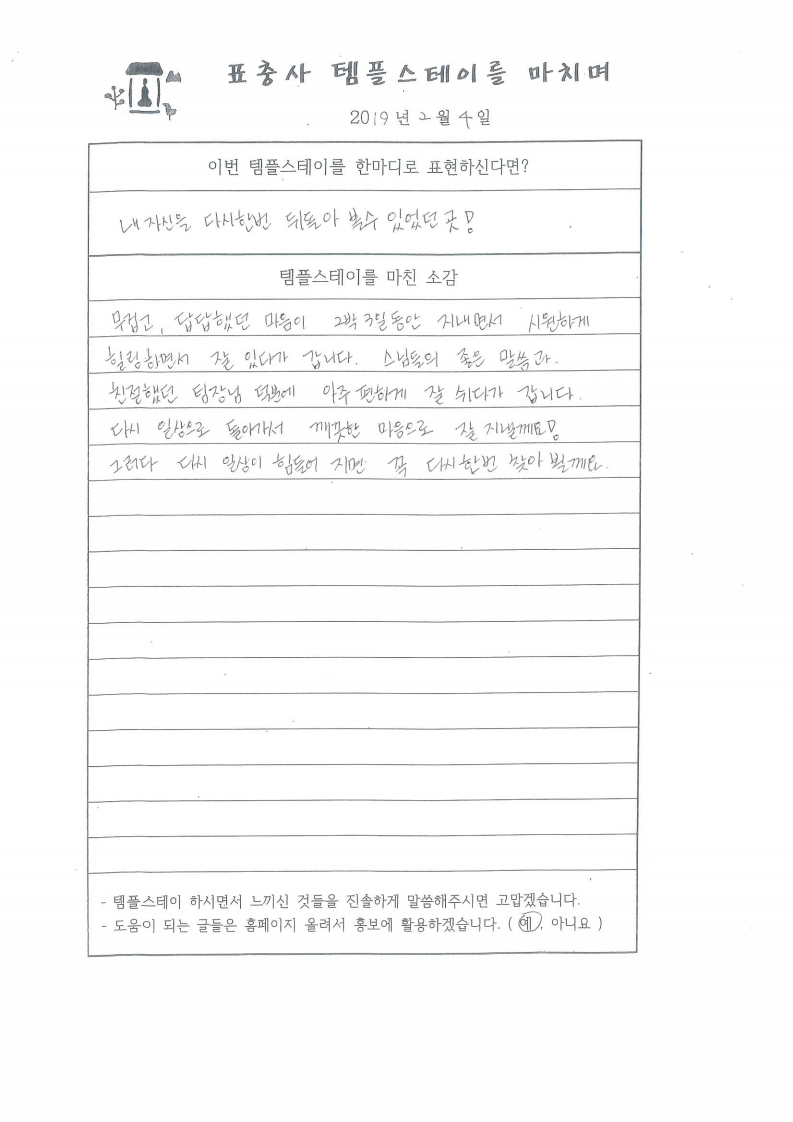 표충사 템플스테이를 마치며
2019년 2월 4일
이번 템플스테이를 한마디로 표현하신다면?
내 자신을 다시한번 뒤돌아 볼수 있었던 곳!
템플스테이를 마친 소감
무겁고, 답답했던 마음이 2박 3일동안 지내면서 시원하게
힐링하면서 잘 있다가 갑니다. 스님들의 좋은 말씀과.
친절했던 팀장님 덕분에 아주 편하게 잘 쉬다가 갑니다.
다시 일상으로 돌아가서 깨끗한 마음으로 잘 지낼께요!
그러다 다시 일상이 힘들어 지면 꼭 다시한번 찾아 뵐께요.
- 템플스테이 하시면서 느끼신 것들을 진솔하게 말씀해주시면 고맙겠습니다.
- 도움이 되는 글들은 홈페이지 올려서 홍보에 활용하겠습니다. ( 예, 아니요 )